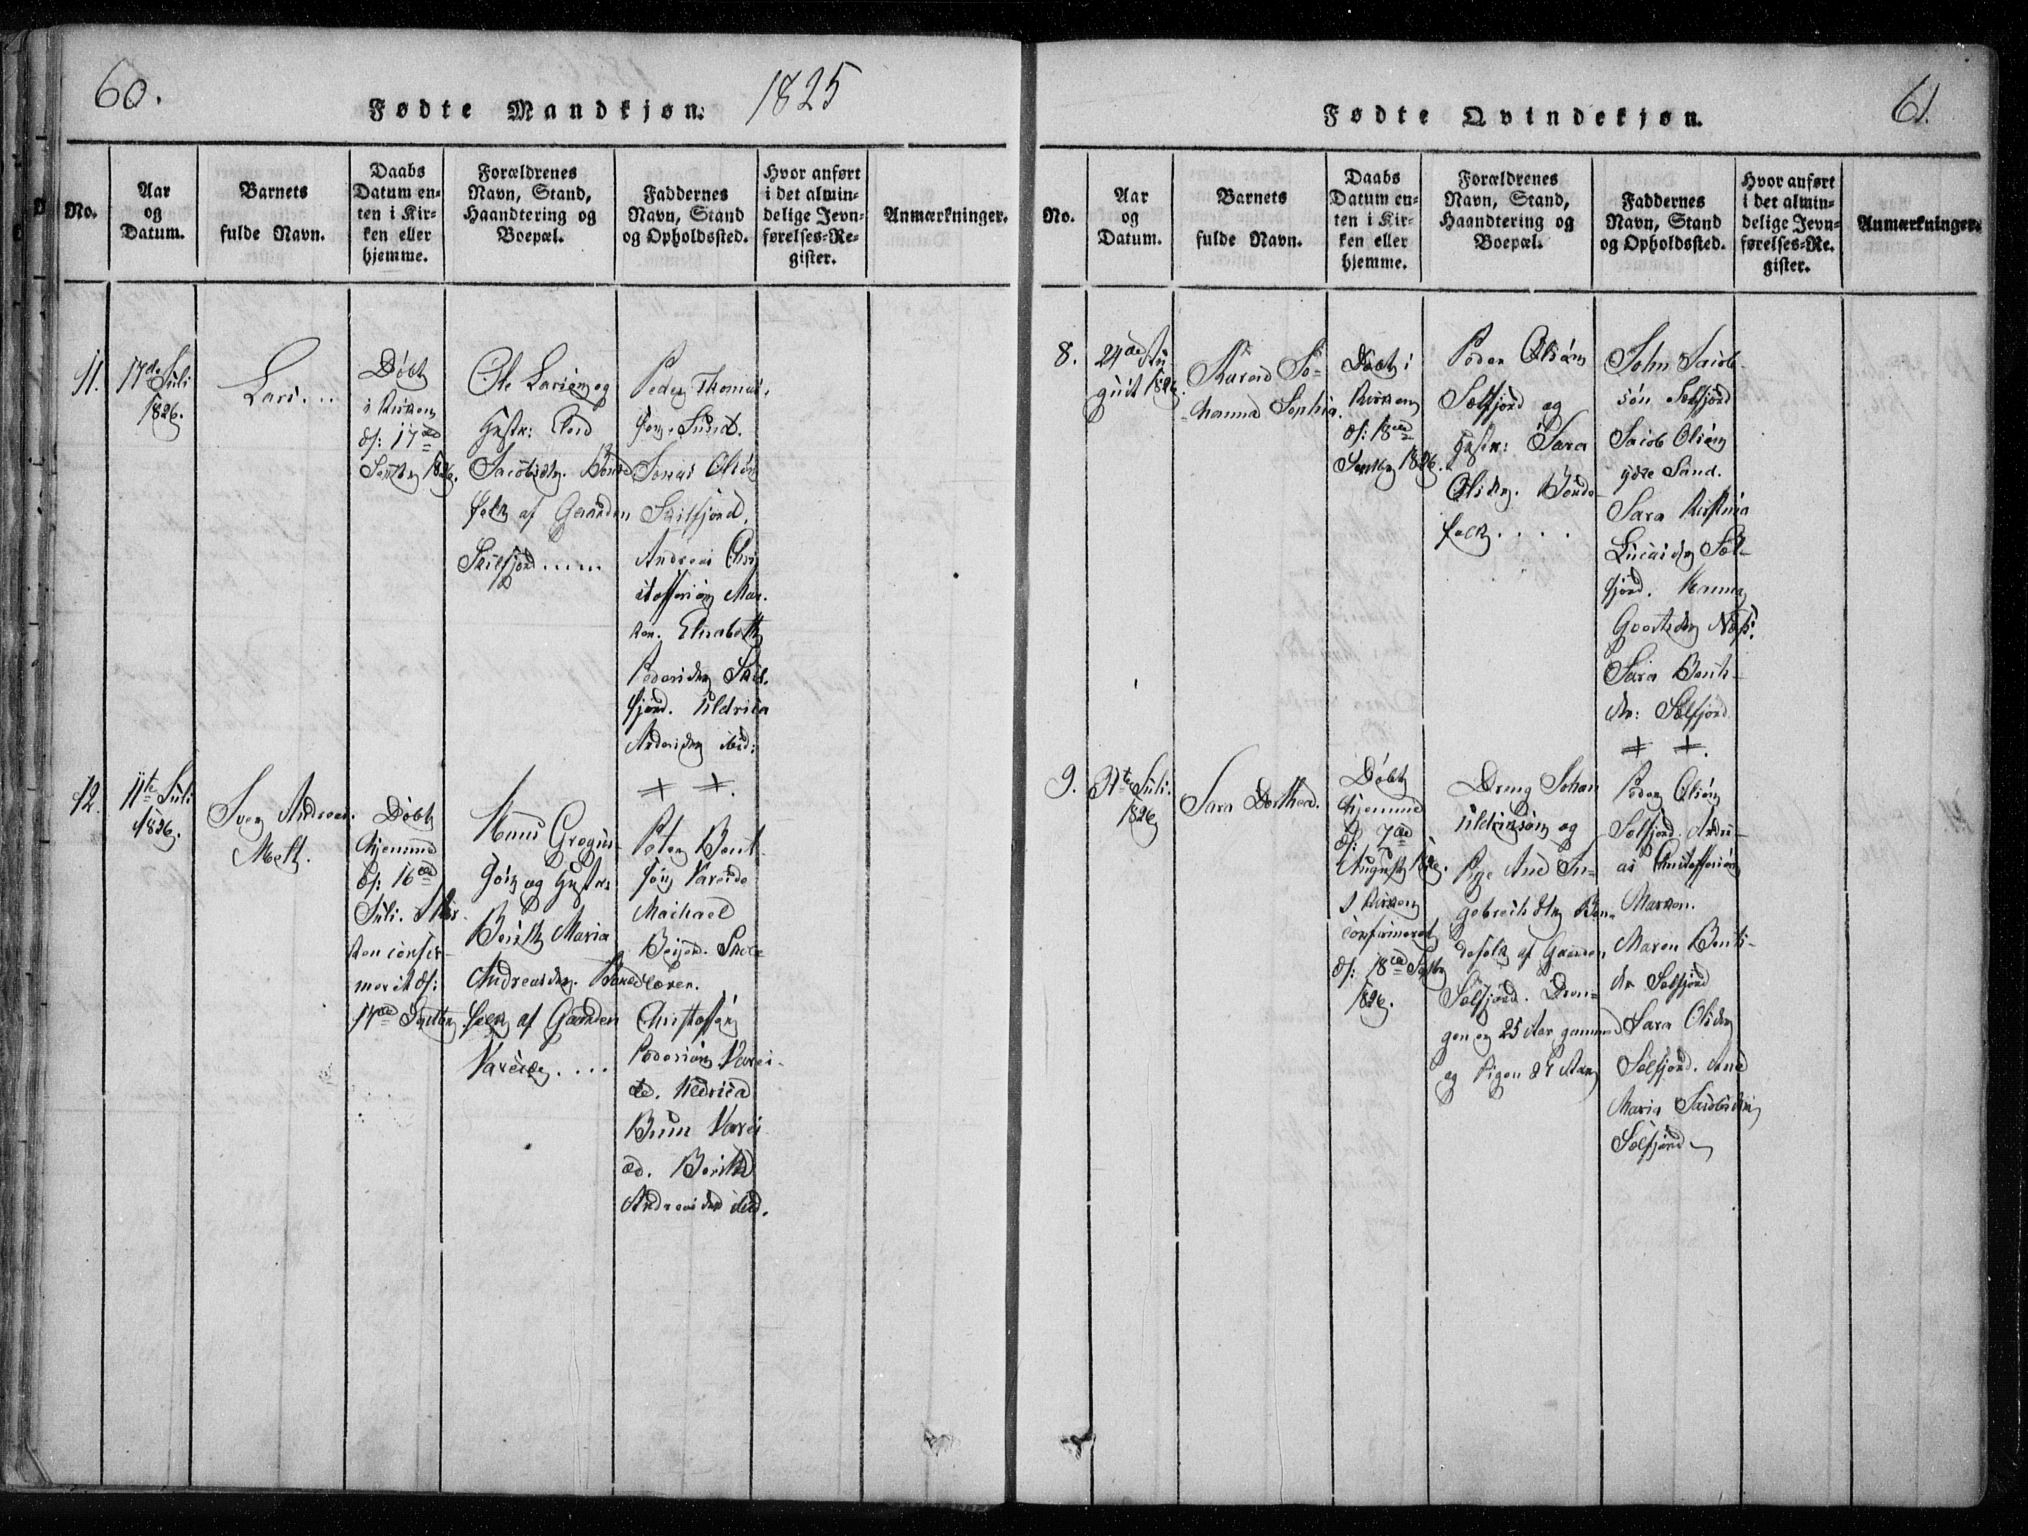 60.
Fødte Mandkjøn. 1825
No.
Aar
og
Datum.
Barnets
fulde Navn.
Daabs
Datum en-
ten i Kir-
ken eller
hjemme.
Forældrenes
Navn, Stand,
Haandtering og
Boepæl.
Faddernes
Navn, Stand
og Opholdssted.
Hvor anført
i det almin-
delige Jevn-
førelses-Re-
gister.
Anmærkninger.
11.
17de Juli
1826.
Lars. ..
Døbt
i Kirken
d: 17de
Septbr 1826.
Ole Larsen og
Hustr:
Jacobsdtr. Bønde
folk af Gaarden
Skilfjord.....
Peder Thomas.
sen Sund.
Jonas Olsøn
Skilfjord.
Andreas Chri
stoffersøn Mar.
ken. Elisabeth
Pedersdtr Skil.
fjord. Uldrica
Andersdtr ibid:
+ +.
12.
11te Juli
1826.
Sven Andreas
Melk.
Døbt
hjemme
d: 16de
Juli. I Kir
ken confir-
meret d:
17de Septbr
Hans Gregus-
søn og Hustr:
Berith Maria
Andreasdtr. Bønde
folk af Gaarden
Vareide. ...
Peter Bent
søn Vareide
Michael
Skole
læren.
Christoffer
Pedersøn Varei
de. Uldrica
Varei
de. Berith
Andreasdtr ibid.
61.
Fødte Qvindekjøn.
No.
Aar
og
Datum.
Barnets
fulde Navn.
Daabs
Datum en-
ten i Kir-
ken eller
hjemme.
Forældrenes
Navn, Stand,
Haandtering og
Boepæl.
Faddernes
Navn, Stand
og Opholdssted.
Hvor anført
i det almin-
delige Jevn-
førelses-Re-
gister.
Anmærkninger.
8.
24de Au
gust 1826.
Karen Jo-
hanna Sophia.
Døbt i
Kirken
d: 18de
Septbr 1826.
Peder Olsøn
Selfjord og
Hustr: Sara
Olsdtr. Bønde-
folk. . . .
John Jacob-
søn Selfjord
Jacob Olsøn
ydre Sand.
Sara Kirstina
Lucasdtr Sel-
fjord. Hanna
Govertsdtr Næss.
Sara Bents-
dtr: Selfjord
+ +.
9.
31te Juli.
1826
Sara Dorthea.
Døbt
hjemme
d: 7de
August 1826.
I Kirken
confirmeret
d: 18de Septbr
1826.
Dreng Johan
Uldrichsøn og
Pige Ane In-
gebrechtsdtr Bøn-
defolk af Gaarden
Selfjord. Dren-
gen er 25 Aar gammel
og Pigen 24 Aar
Peder Olsøn
Selfjord. Andre-
as Christoffersøn
Marken.
Maren Bents-
dtr Selfjord
Sara Olsdtr
Selfjord. Ane
Maria Jacobsdtr
Selfjord